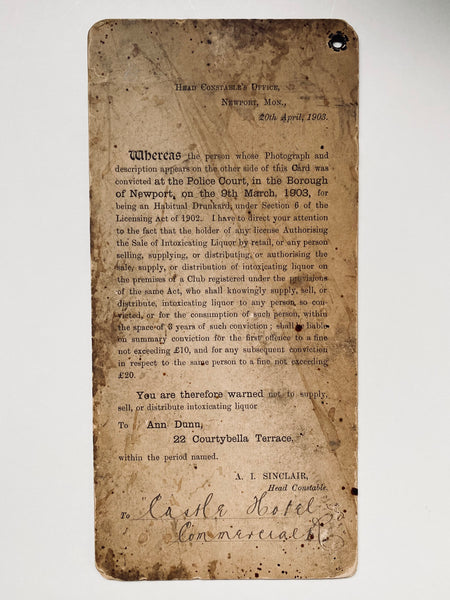 Head Constable's Office,
Newport, Mon.,
20th April, 1903.
Whereas the person whose Photograph and
description appears on the other side of this Card was
convicted at the Police Court, in the Borough
of Newport, on the 9th March, 1903, for
being an Habitual Drunkard, under Section 6 of the
Licensing Act of 1902. I have to direct your attention
to the fact that the holder of any license Authorising
the Sale of Intoxicating Liquor by retail, or any person
selling, supplying, or distributing, or authorising the
sale, supply, or distribution of intoxicating liquor on
the premises of a Club registered under the provisions
of the same Act, who shall knowingly supply, sell, or
distribute, intoxicating liquor to any person, so con-
victed, or for the consumption of such person, within
the space of 3 years of such conviction; shall be liable
on summary conviction for the first offence to a fine
not exceeding £10, and for any subsequent conviction
in respect to the same person to a fine not exceeding
£20.
You are therefore warned not to supply,
sell, or distribute intoxicating liquor
To Ann Dunn,
22 Courtybella Terrace,
within the period named.
A. I. SINCLAIR,
Head Constable.
To "Castle Hotel
Commercial